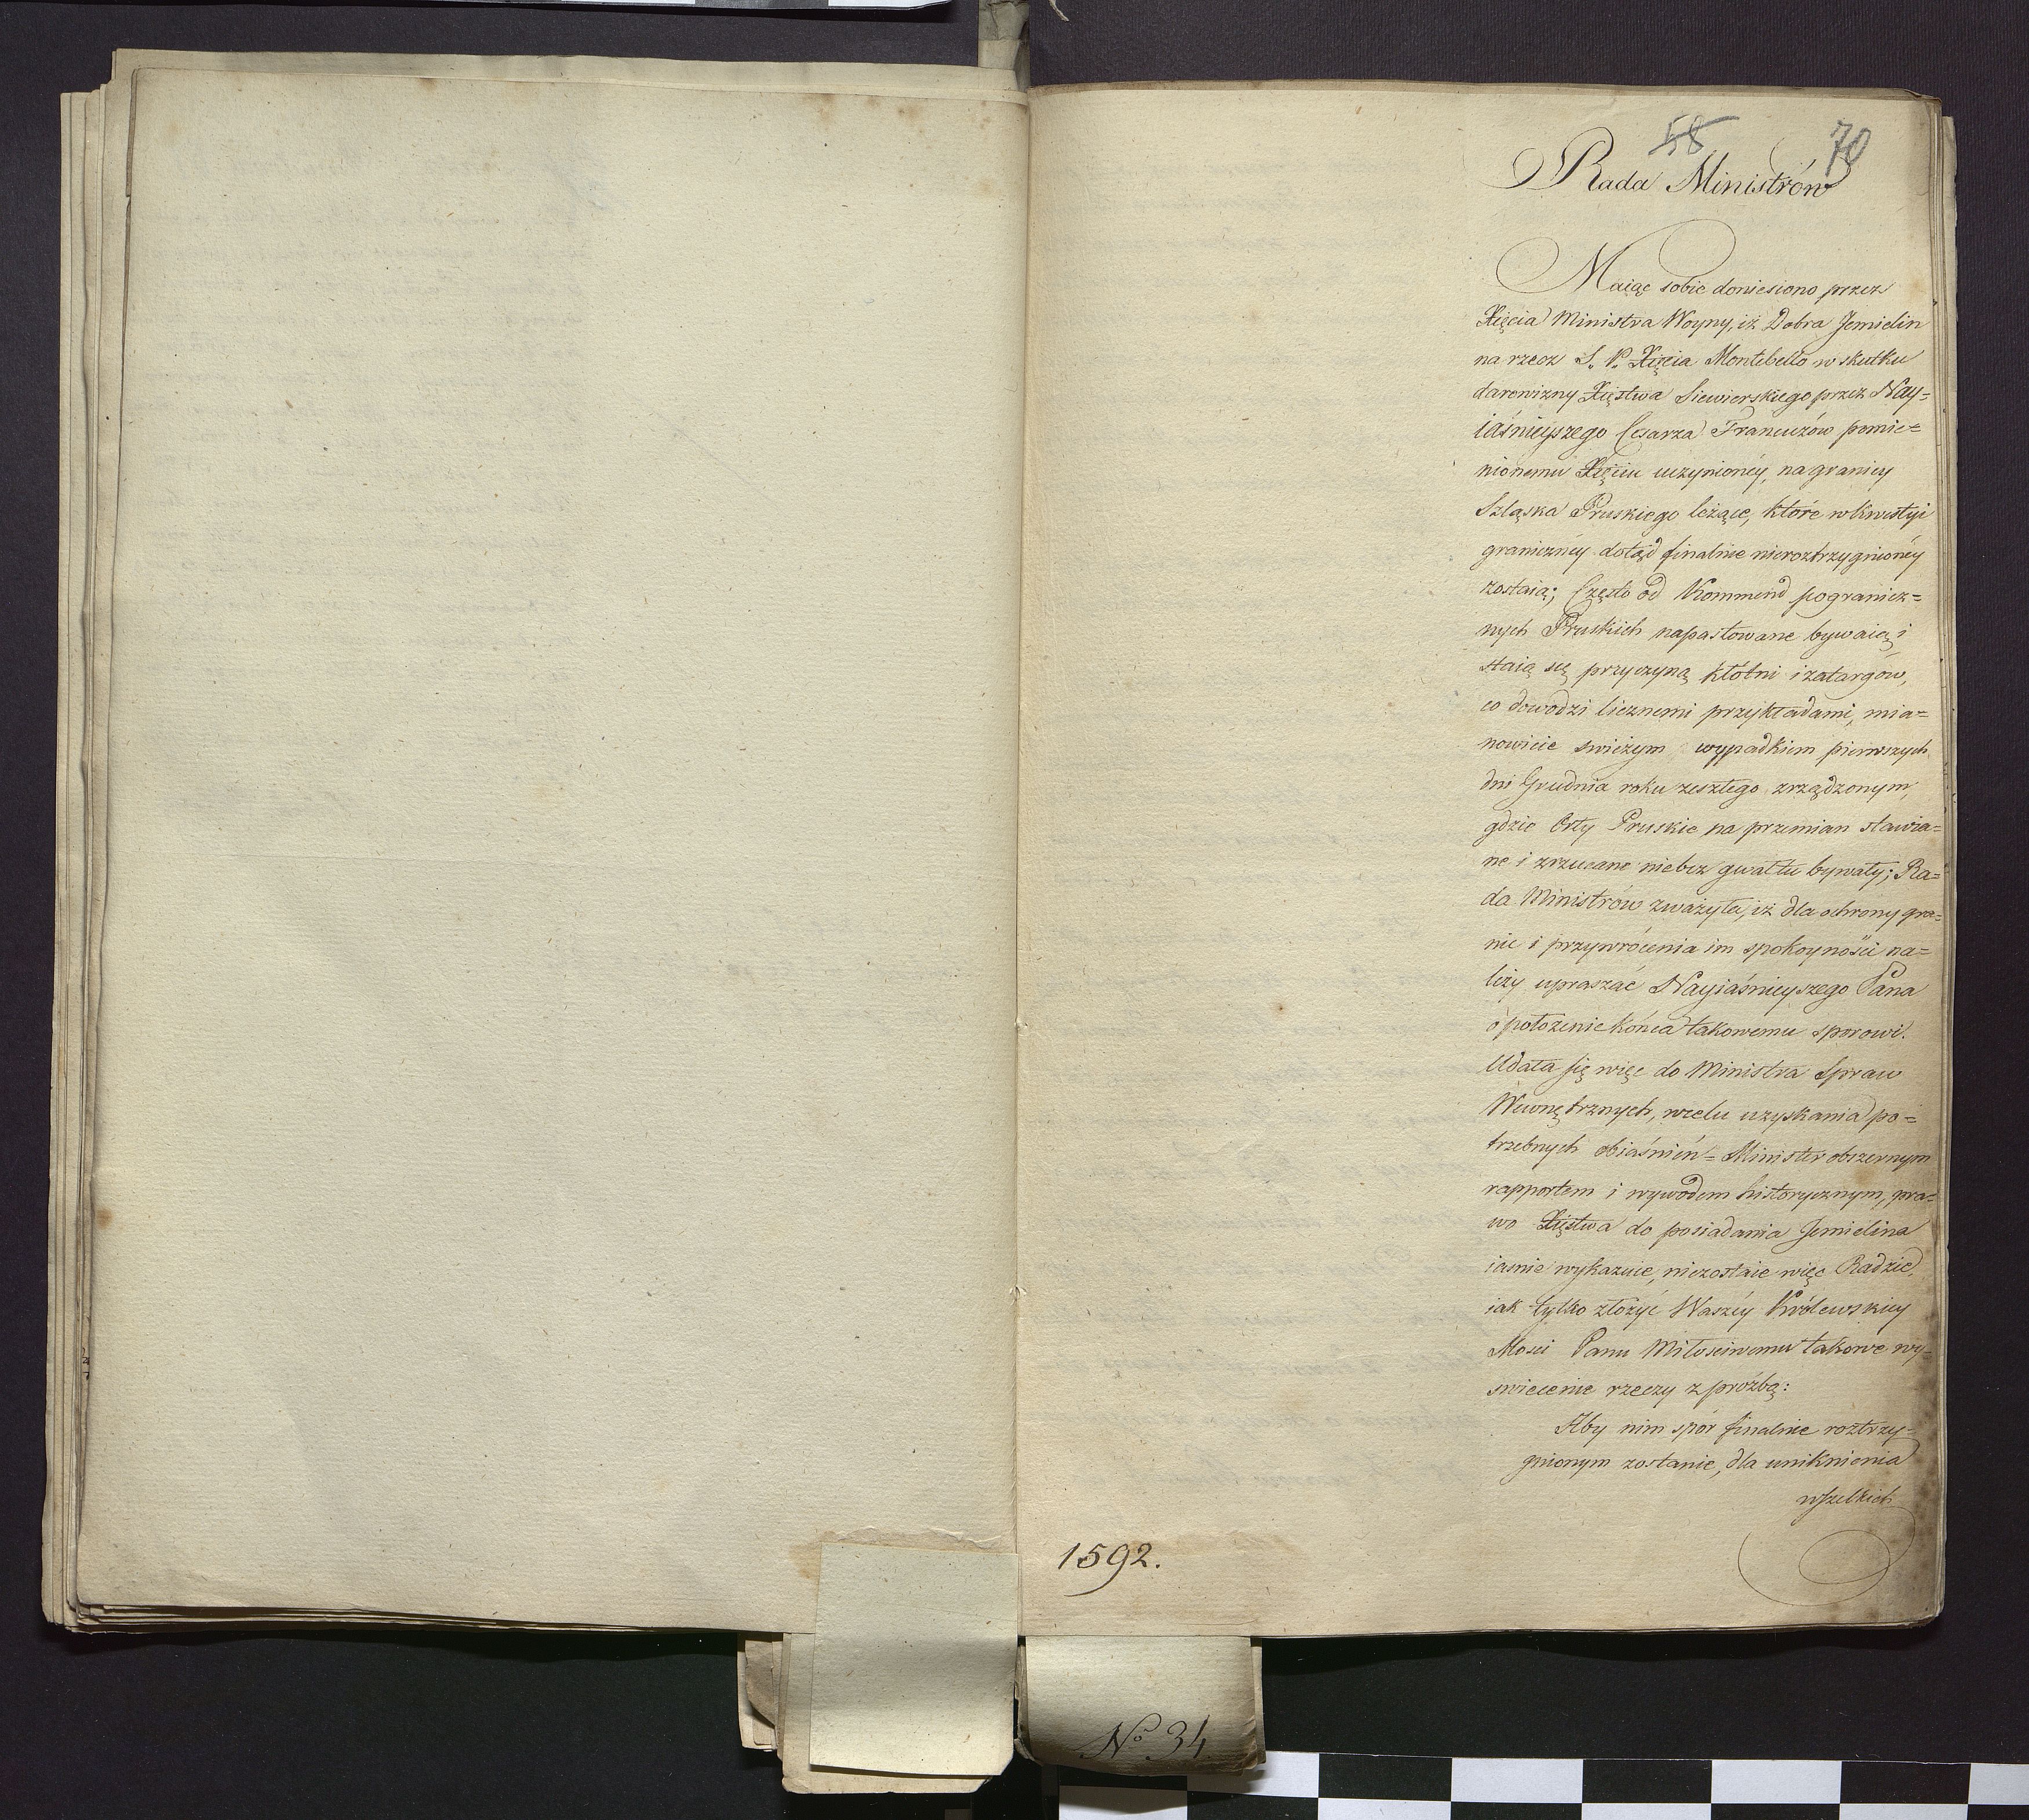 58 70
Rada Ministrów
Maiąc sobie doniesiono przez
Xięcia Ministra Woyny, iż Dobra Jemielin
na rzecz S. P. Xięcia Montebello w skutku
darowizny Xięstwa Siewierskiego przez Nay=
iáśnieyszego Cesarza Francuzów pomie=
nionemu Xięciu uczynionéy, na granicy
Szląska Pruskiego leżące, które w kwestyi
granicznéy dotąd finalnie nieroztrzygnionéy
zostaią; Często od Kommend pogranicz=
nych Pruskich napastowane bywaią i
staią się przyczyną kłótni i zatargów,
co dowodzi licznemi przykładami, mia=
nowicie swieżym wypadkiem pierwszych
dni Grudnia roku zeszłego zrządzonym,
gdzie Orły Pruskie na przemian stawia=
ne i zrzucane niebez gwałtu bywały; Ra=
da Ministrów zważyła, iż dla ochrony gra=
nic i przywrócenia im spokoyności na=
leży upraszać Nayiáśnieyszego Pana
o położenie końca takowemu sporowi.
Udała się więc do Ministra Spraw
Wewnętrznych, wcelu uzyskania po=
trzebnych obiaśnień = Minister obszernym
rapportem i wywodem historycznym, pra=
wo Xięstwa do posiadania Jemielina
iasnie wykazuie, niezostaie więc Radzie,
iak tylko złożyć Waszéy Królewskiey
Mosci Panu Miłosciwemu takowe wy=
swiecenie rzeczy z prózbą:
Aby nim spór finalnie roztrzy=
gnionym zostanie, dla uniknienia
wszelkich
1592.
No 34.